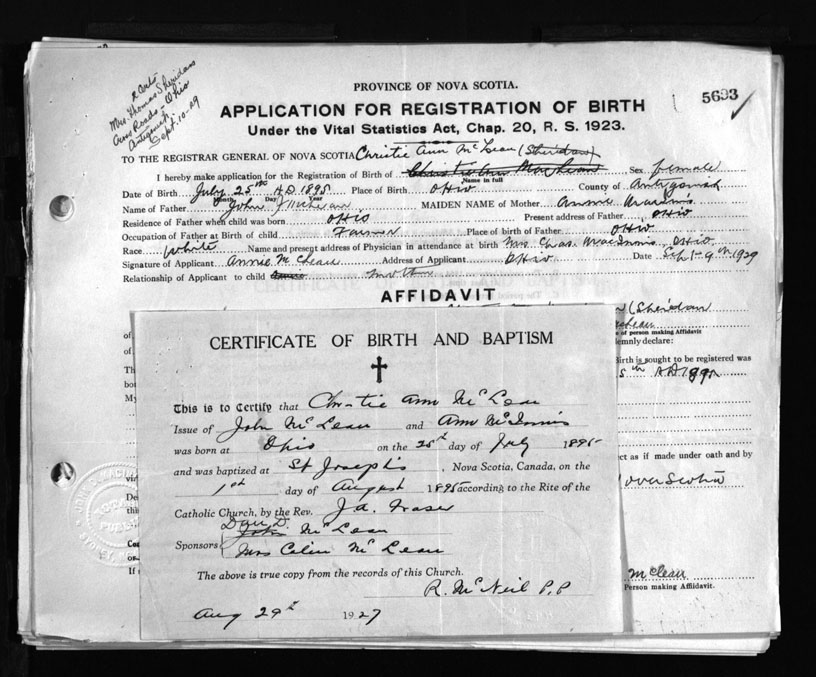 2 Certs
Mrs. Thomas Sheridan
Cross Roads - Ohio
Antigonish
Sept-10-29
PROVINCE OF NOVA SCOTIA.
5693
APPLICATION FOR REGISTRATION OF BIRTH
Under the Vital Statistics Act, Chap. 20, R. S. 1923.
TO THE REGISTRAR GENERAL OF NOVA SCOTIA Christie Ann McLean (Sheridan)
I hereby make application for the Registration of Birth of Christie Ann MacLean Sex female
Name in full
Date of Birth July 25th A.D 1895 Place of Birth Ohio County of Antigonish
Month Day Year
Name of Father John McLean MAIDEN NAME of Mother Annie
Residence of Father when child was born Ohio Present address of Father Ohio
Occupation of Father at Birth of child Farmer Place of birth of Father Ohio
Race White Name and present address of Physician in attendance at birth Mrs. Chas. MacInnis Ohio
Signature of Applicant Annie McLean Address of Applicant Ohio Date Sept 9th 1929
Relationship of Applicant to child Mother
AFFIDAVIT
(Sheridan
of person making Affidavit
emnly declare:
Birth is sought to be registered was
A.D 1895
ect as if made under oath and by
Nova Scotia
McLean
Person making Affidavit.
CERTIFICATE OF BIRTH AND BAPTISM
This is to Certify that Christie Ann McLean
Issue of John McLean and Ann McInnis
was born at Ohio on the 25th day of July 1895
and was baptized at St Joseph's, Nova Scotia, Canada, on the
1st day of August 1895 according to the Rite of the
Catholic Church, by the Rev. J.A. Fraser
Dan D.
Sponsors John McLean
Mrs Colin McLean
The above is true copy from the records of this Church.
R. McNeil P.P
Aug 29th 1927